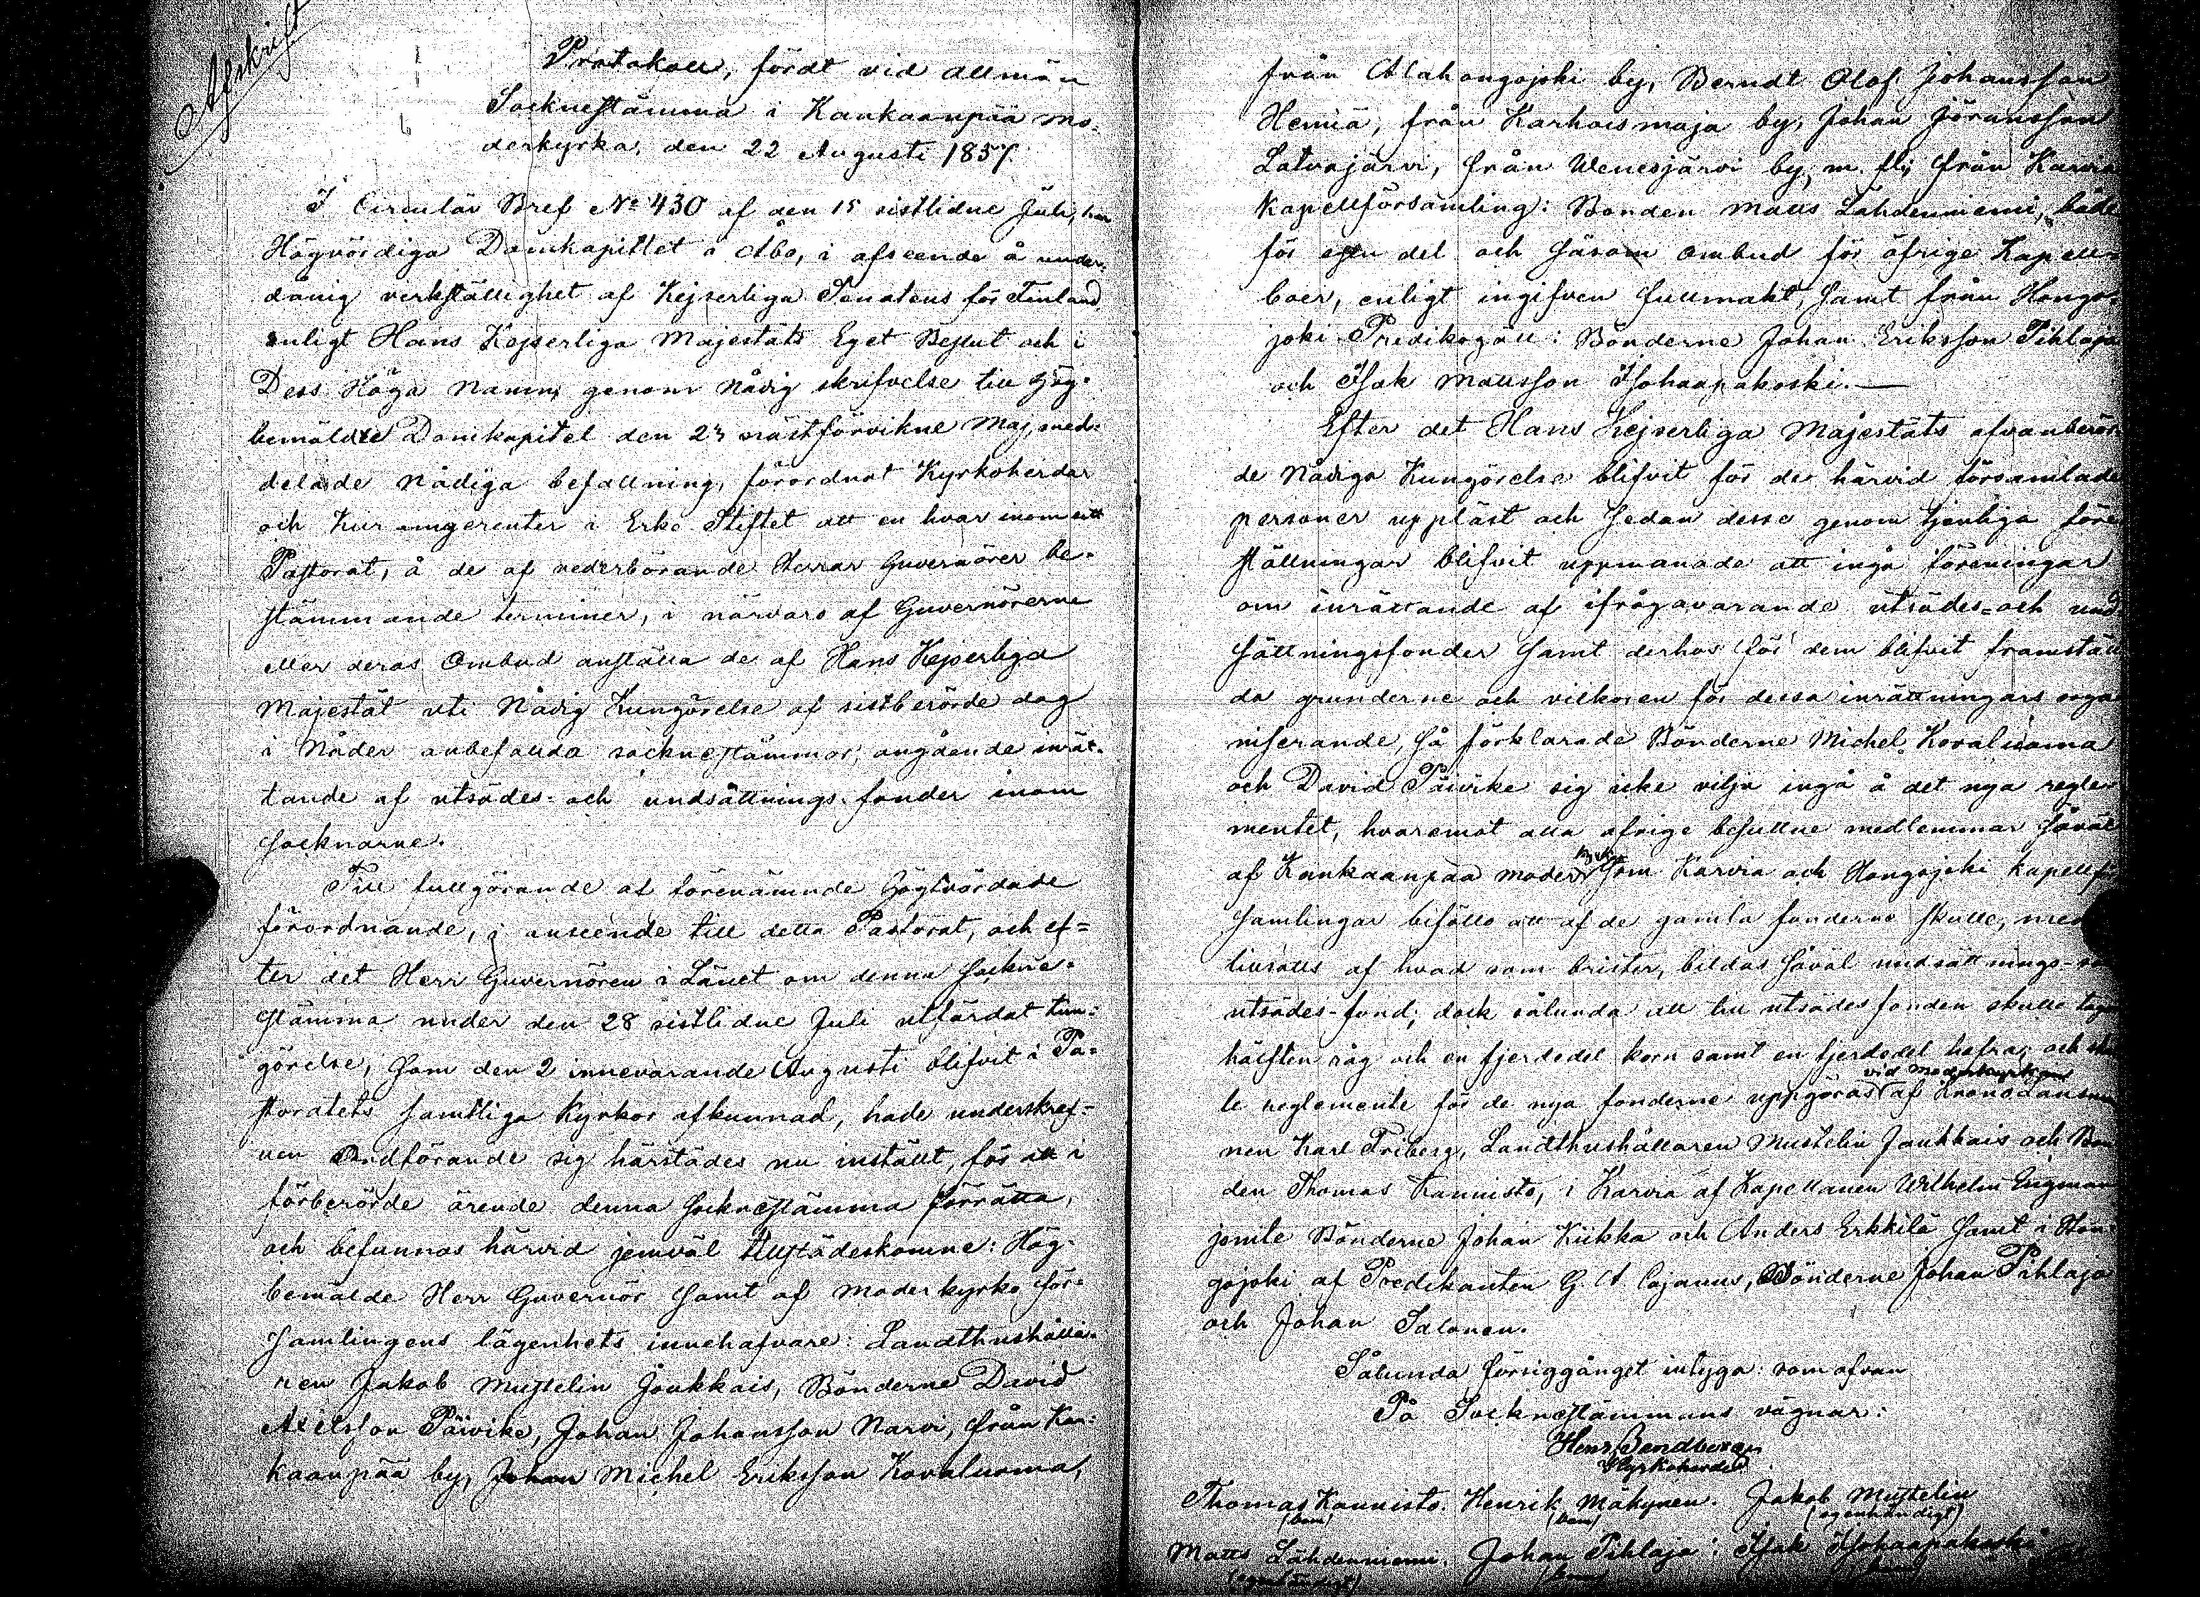 Afskrift
Protokoll, fördt vid allmän
Socknestämma i Kankaanpää mo-
derkyrka, den 22 Augusti 1857.
I Circulär Bref No 430 af den 15 sistlidne Juli, har
Högvördiga Domkapitlet i Åbo, i afseende å under-
dånig verkställighet af Kejserliga Senatens för Finland,
enligt Hans Kejserliga Majestäts Eget Beslut och i
Dess Höga Namn, genom nådig skrifvelse till Hög-
bemäldte Domkapitel den 23 nästförvikne Maj, med-
delade nådiga befallning, förordnat Kyrkoherdar
och i Erke Stiftet att en hvar inom sitt
Pastorat, å de af vederbörande Herrar Guvernörer be-
stämmande terminer, i närvaro af Guvernörerne
eller deras Ombud anställa de af Hans Kejserliga
Majestät uti Nådig Kungörelse af sistberörde dag
i Nåder anbefallda socknestämmor, angående inrät-
tande af utsädes- och undsättnings-fonder inom
Socknarne.
Till fullgörande af förenämnde Högtvördade
förordnande, i anseende till detta Pastorat, och ef-
ter det Herr Guvernören i Länet om denna Sockne-
stämma under den 28 sistlidne Juli utfärdat kun-
görelse, som den 2 innevarande Augusti blifvit i Pa-
storatets samtliga Kyrkor afkunnad, hade underskref-
ven Ordförande sig härstädes nu inställt, för att i
förberörde ärende denna Socknestämma förrätta,
och befunnos härvid jemväl tillstädeskomne: Hög-
bemälde Herr Guvernör samt af moderkyrko för-
samlingens lägenhets innehafvare: Landthushålla-
ren Jakob Mustelin Joukkais, Bönderne David
Axelsson Päivike, Johan Johansson Narvi, från Kan-
kaanpää by, Johan Michel Eriksson Kovaluoma,
från Alahongojoki by, Berndt Olof Johansson
Hemiä, från Karhoismaja by, Johan Göransson
Latvajärvi, från Wenesjärvi by, m. fl; från Karvia
Kapellförsamling: Bonden Matts Lähdenniemi, både
för egen del och såsom ombud för öfrige Kapell-
boer, enligt ingifven fullmakt, samt från Hongo-
joki Predikogäll: Bönderne Johan Eriksson Pihlaja
och Isak Mattsson Isohaapakoski.
Efter det Hans Kejserliga Majestäts ofvanberör-
de Nådiga Kungörelse blifvit för de härvid församlade
personer uppläst och sedan desse genom tjenliga före-
ställningar blifvit uppmanade att ingå föreningar
om inrättande af ifrågavarande utsädes- och und-
sättningsfonder samt derhos för dem blifvit framstäl-
da grunderne och vilkoren för dessa inrättningars orga-
niserande, så förklarade Bönderne Michel Kovaluoma
och David Päivike sig icke vilja ingå å det nya regle-
mentet, hvaremot alla öfrige besuttne medlemmar såväl
af Kankaanpää moder kyrko som Karvia och Hongojoki kapellför
samlingar biföllo att af de gamla fonderne skulle, med
tillsatts af hvad som brister, bildas såväl undsättnings- som
utsädes-fond; dock sålunda att till utsädes fonden skulle tagas
hälften råg och en fjerdedel korn samt en fjerdedel hafra; och skul
le reglemente för de nya fonderne uppgöras vid Moderkyrkan af Kronolänsman
nen Karl Friberg, Landthushållaren Mustelin Joukkais och Bon
den Thomas Kannisto, i Karvia af Kapellanen Wilhelm Engman
jemte Bönderne Johan Kiikka och Anders Erkkilä samt i Hon
gojoki af Predikanten G. A. Cajanus, Bönderne Johan Pihlaja
och Johan Salonen.
Sålunda försiggånget intyga: som ofvan
På Socknestämmans vägnar:
Henr. Sandberg
Kyrkoherde
Thomas Kannisto. Henrik Mäkynen. Jakob Mustelin
(bom) (bom) (egenhändigt)
Matts Lähdenniemi. Johan Pihlaja. Isak Isohaapakoski
(egenhändigt) (bom) (bom)